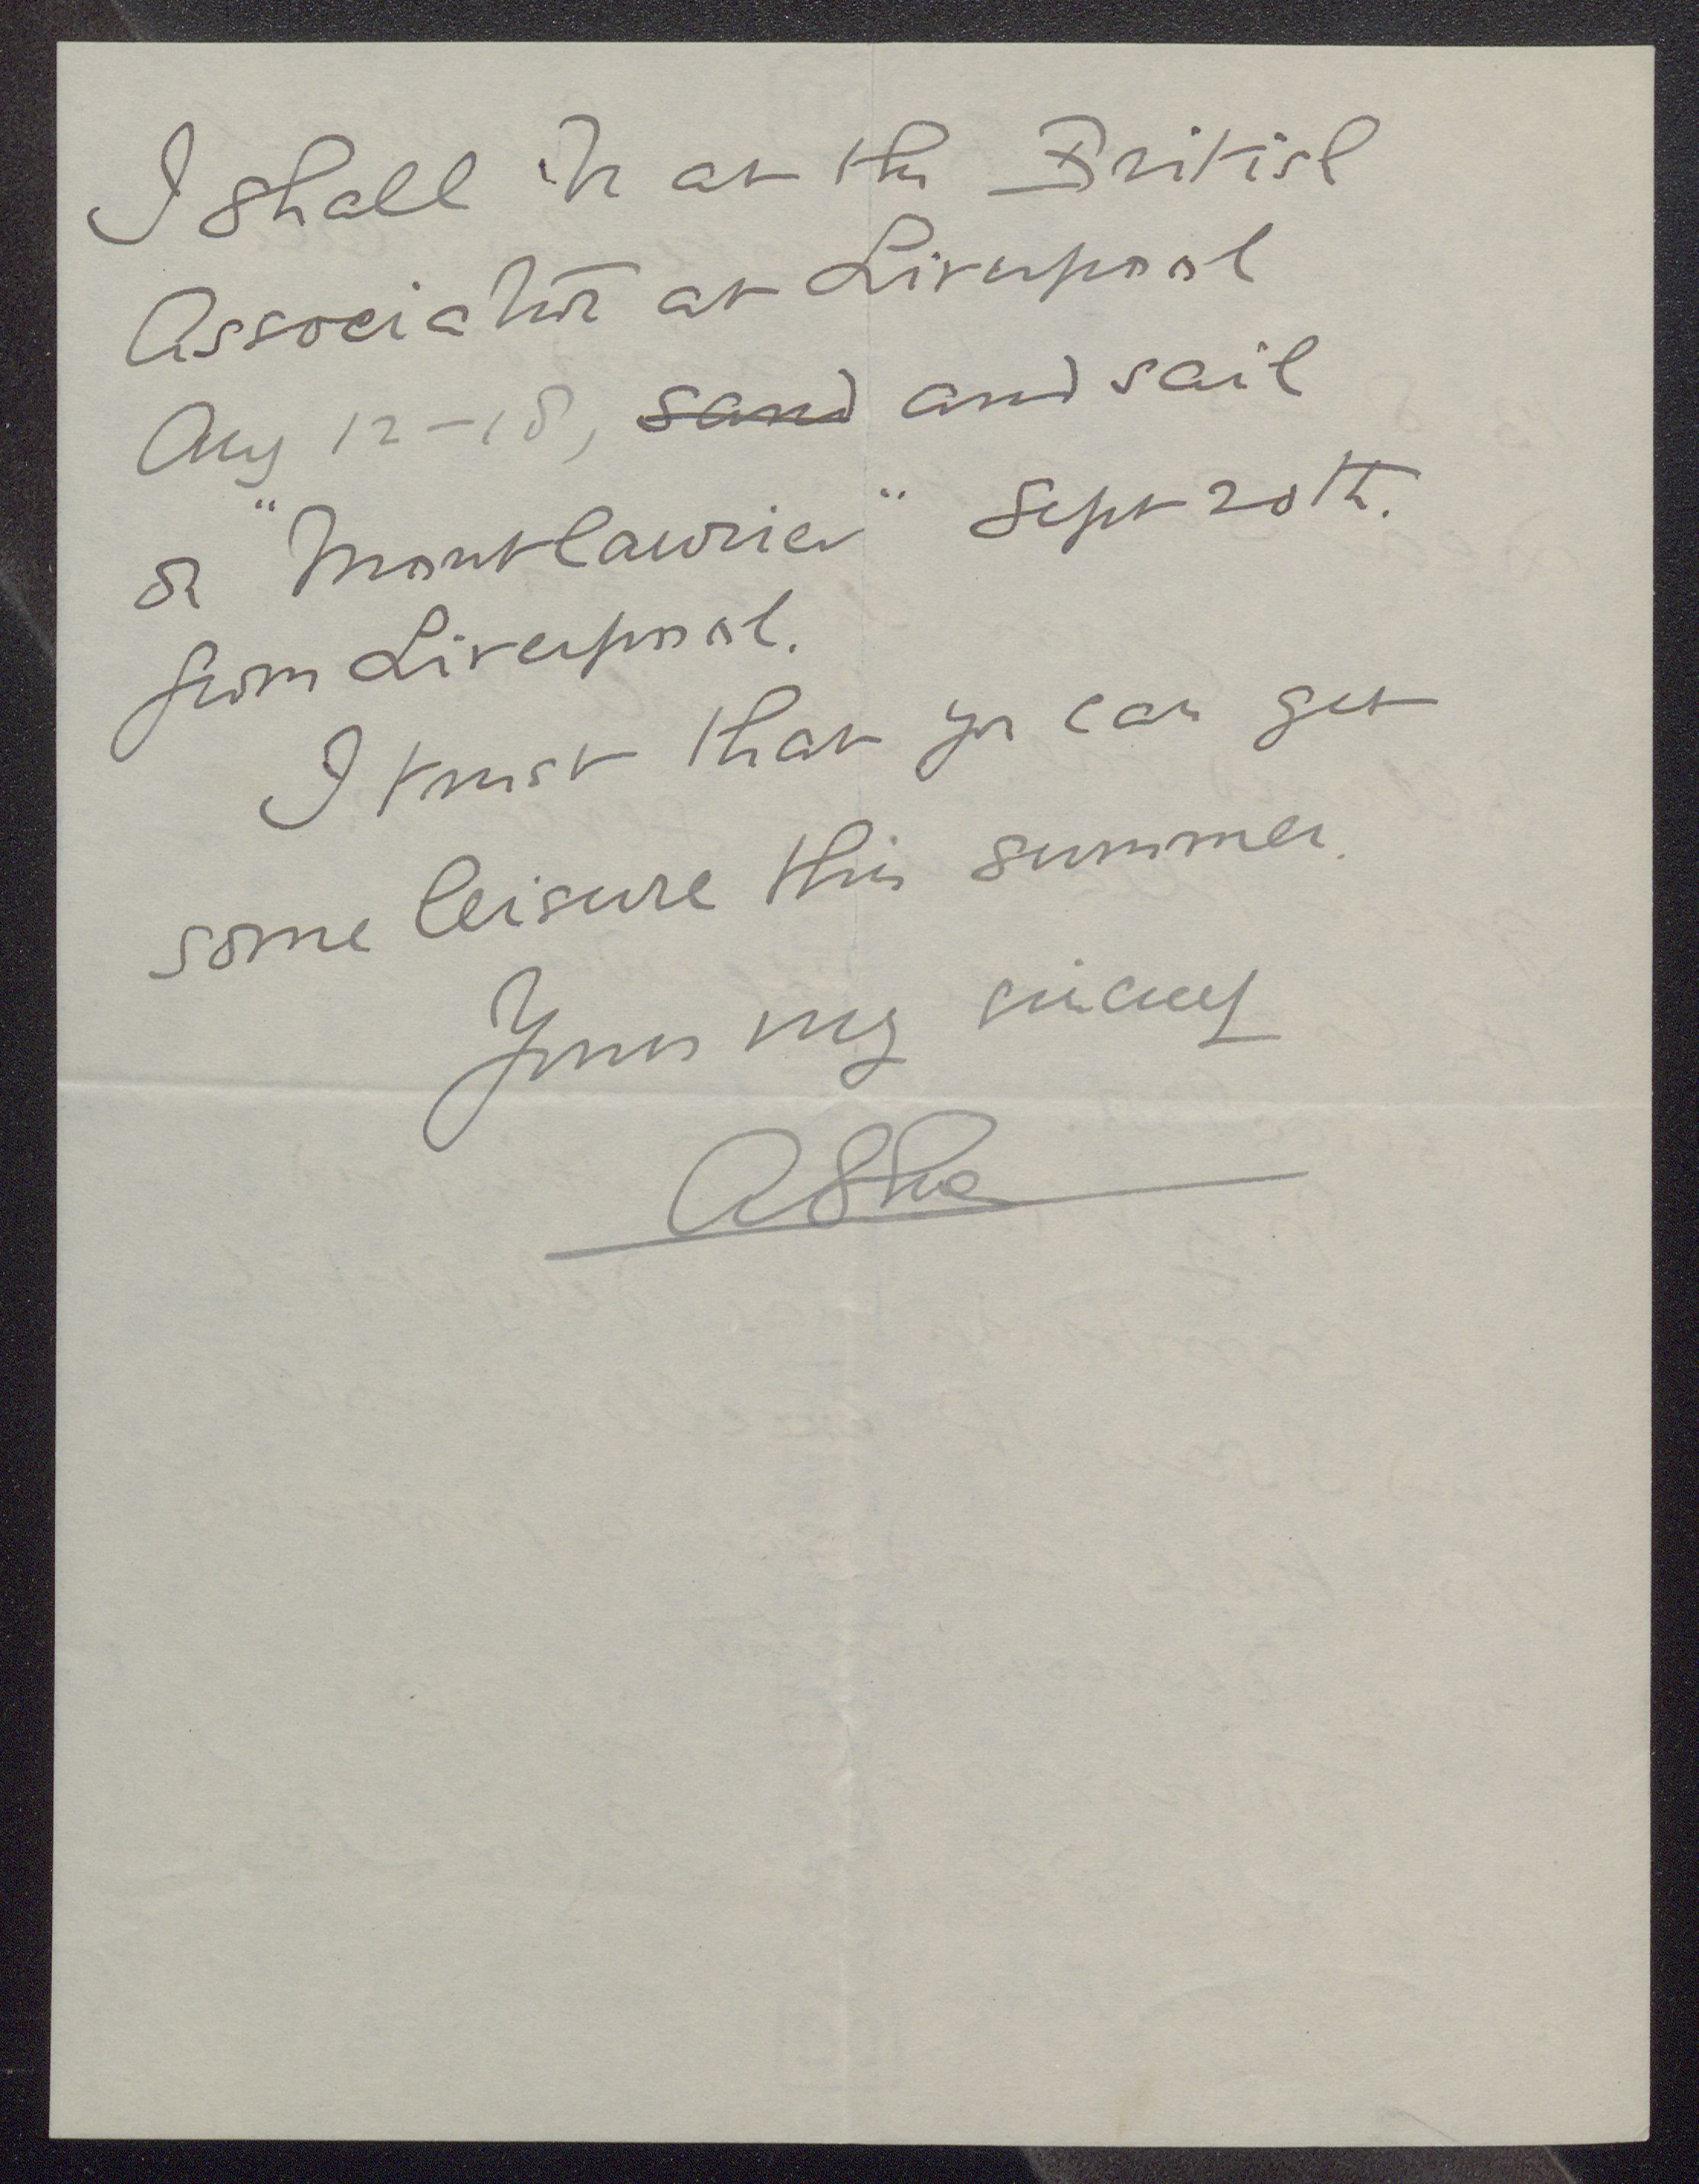 I shall be at the British
Association at Liverpool
Aug 12-18, sand and sail
on "Montlaurier" Sept 20th.
from Liverpool.
I trust that yr can get
some leisure this summer.
Yours very sincerely